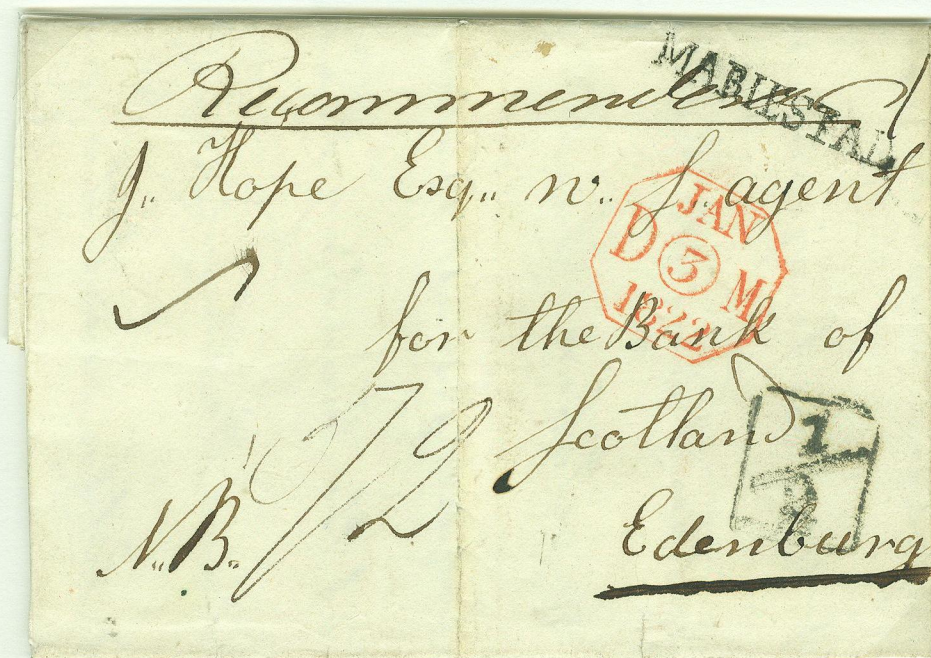 MARIESTAD
Recommenderas
J,, Hope Esq,,
agent
JAN
D 3 M
1822
for the Bank of
Scotland
1/2
72
N,,B,,
Edenburg